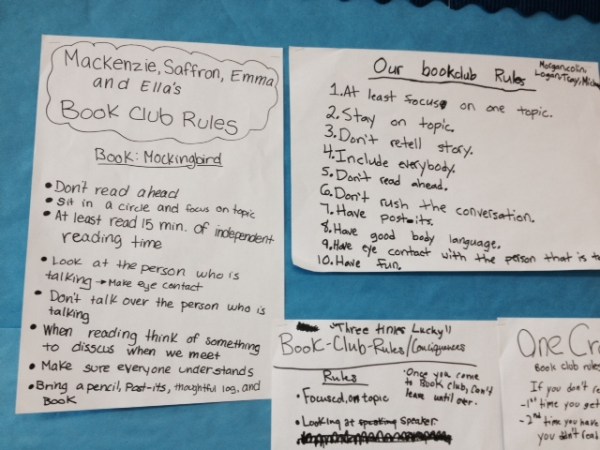 Mackenzie, Saffron, Emma
and Ella's
Book Club Rules
Book: Mockingbird
• Don't read ahead
• Sit in a circle and focus on topic
• At least read 15 min. of independent
reading time
• Look at the person who is
talking → Make eye contact
• Don't talk over the person who is
talking
• When reading think of something
to disscus when we meet
• Make sure everyone understands
• Bring a pencil, Post-its, thoughtful log, and
Book
Our bookclub Rules
Morgan, Colin,
Logan, Tony,
1. At least focus on one topic.
2. Stay on topic.
3. Don't retell story.
4. Include everybody.
5. Don't read ahead.
6. Don't rush the conversation.
7. Have post-its.
8. Have good body language.
9. Have eye contact with the person that is
10. Have fun.
"Three times Lucky"
Book-Club-Rules/
Rules
• Focused on topic
• Looking at speaker
• Once you come
to Book club, Don't
leave until over.
One
Book club rules
If you don't
-1st time you get
-2nd time you have
you